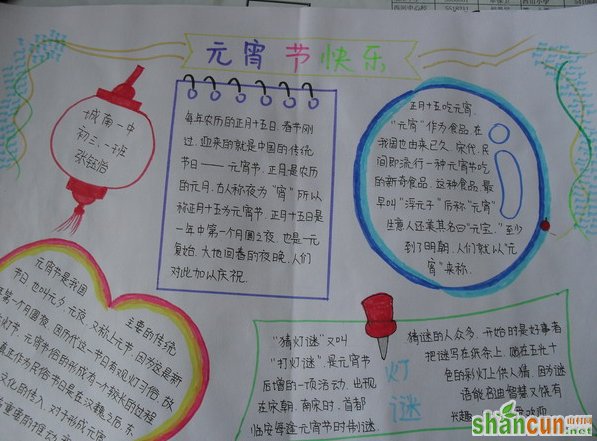 元宵节快乐
城南一中
初三.一班
每年农历的正月十五日.春节刚
过.迎来的就是中国的传统
节日——元宵节.正月是农历
的元月.古人称夜为"宵"所以
称正月十五为元宵节.正月十五日是
一年中第一个月圆之夜.也是一元
复始.大地回春的夜晚.人们
对此加以庆祝.
正月十五吃元宵.
"元宵"作为食品.在
我国也由来已久.宋代.民
间即流行一种元宵节吃
的新奇食品.这种食品.最
早叫"浮元子"后称"元宵"
生意人还美其名曰"元宝."至少
到了明朝.人们就以"元
宵"来称.
元宵节是我国 主要的传统
节日.也叫元夕.元夜.又称上元节.因为这是新
年第一个月圆夜.因历代这一节日有观灯习俗.故
灯节.元宵节俗的形成有一个较长的过程
真正作为民俗节日是在汉魏之后.东
文化的传入.对于形成元宵
"猜灯谜"又叫
"打灯谜"是元宵节
后增的一项活动.出现
在宋朝.南宋时.首都
临安每逢元宵节时制谜.
灯谜
猜谜的人众多.开始时是好事者
把谜写在纸条上.贴在五光十
色的彩灯上供人猜.因为谜
语能启迪智慧又饶有
兴趣
shancun